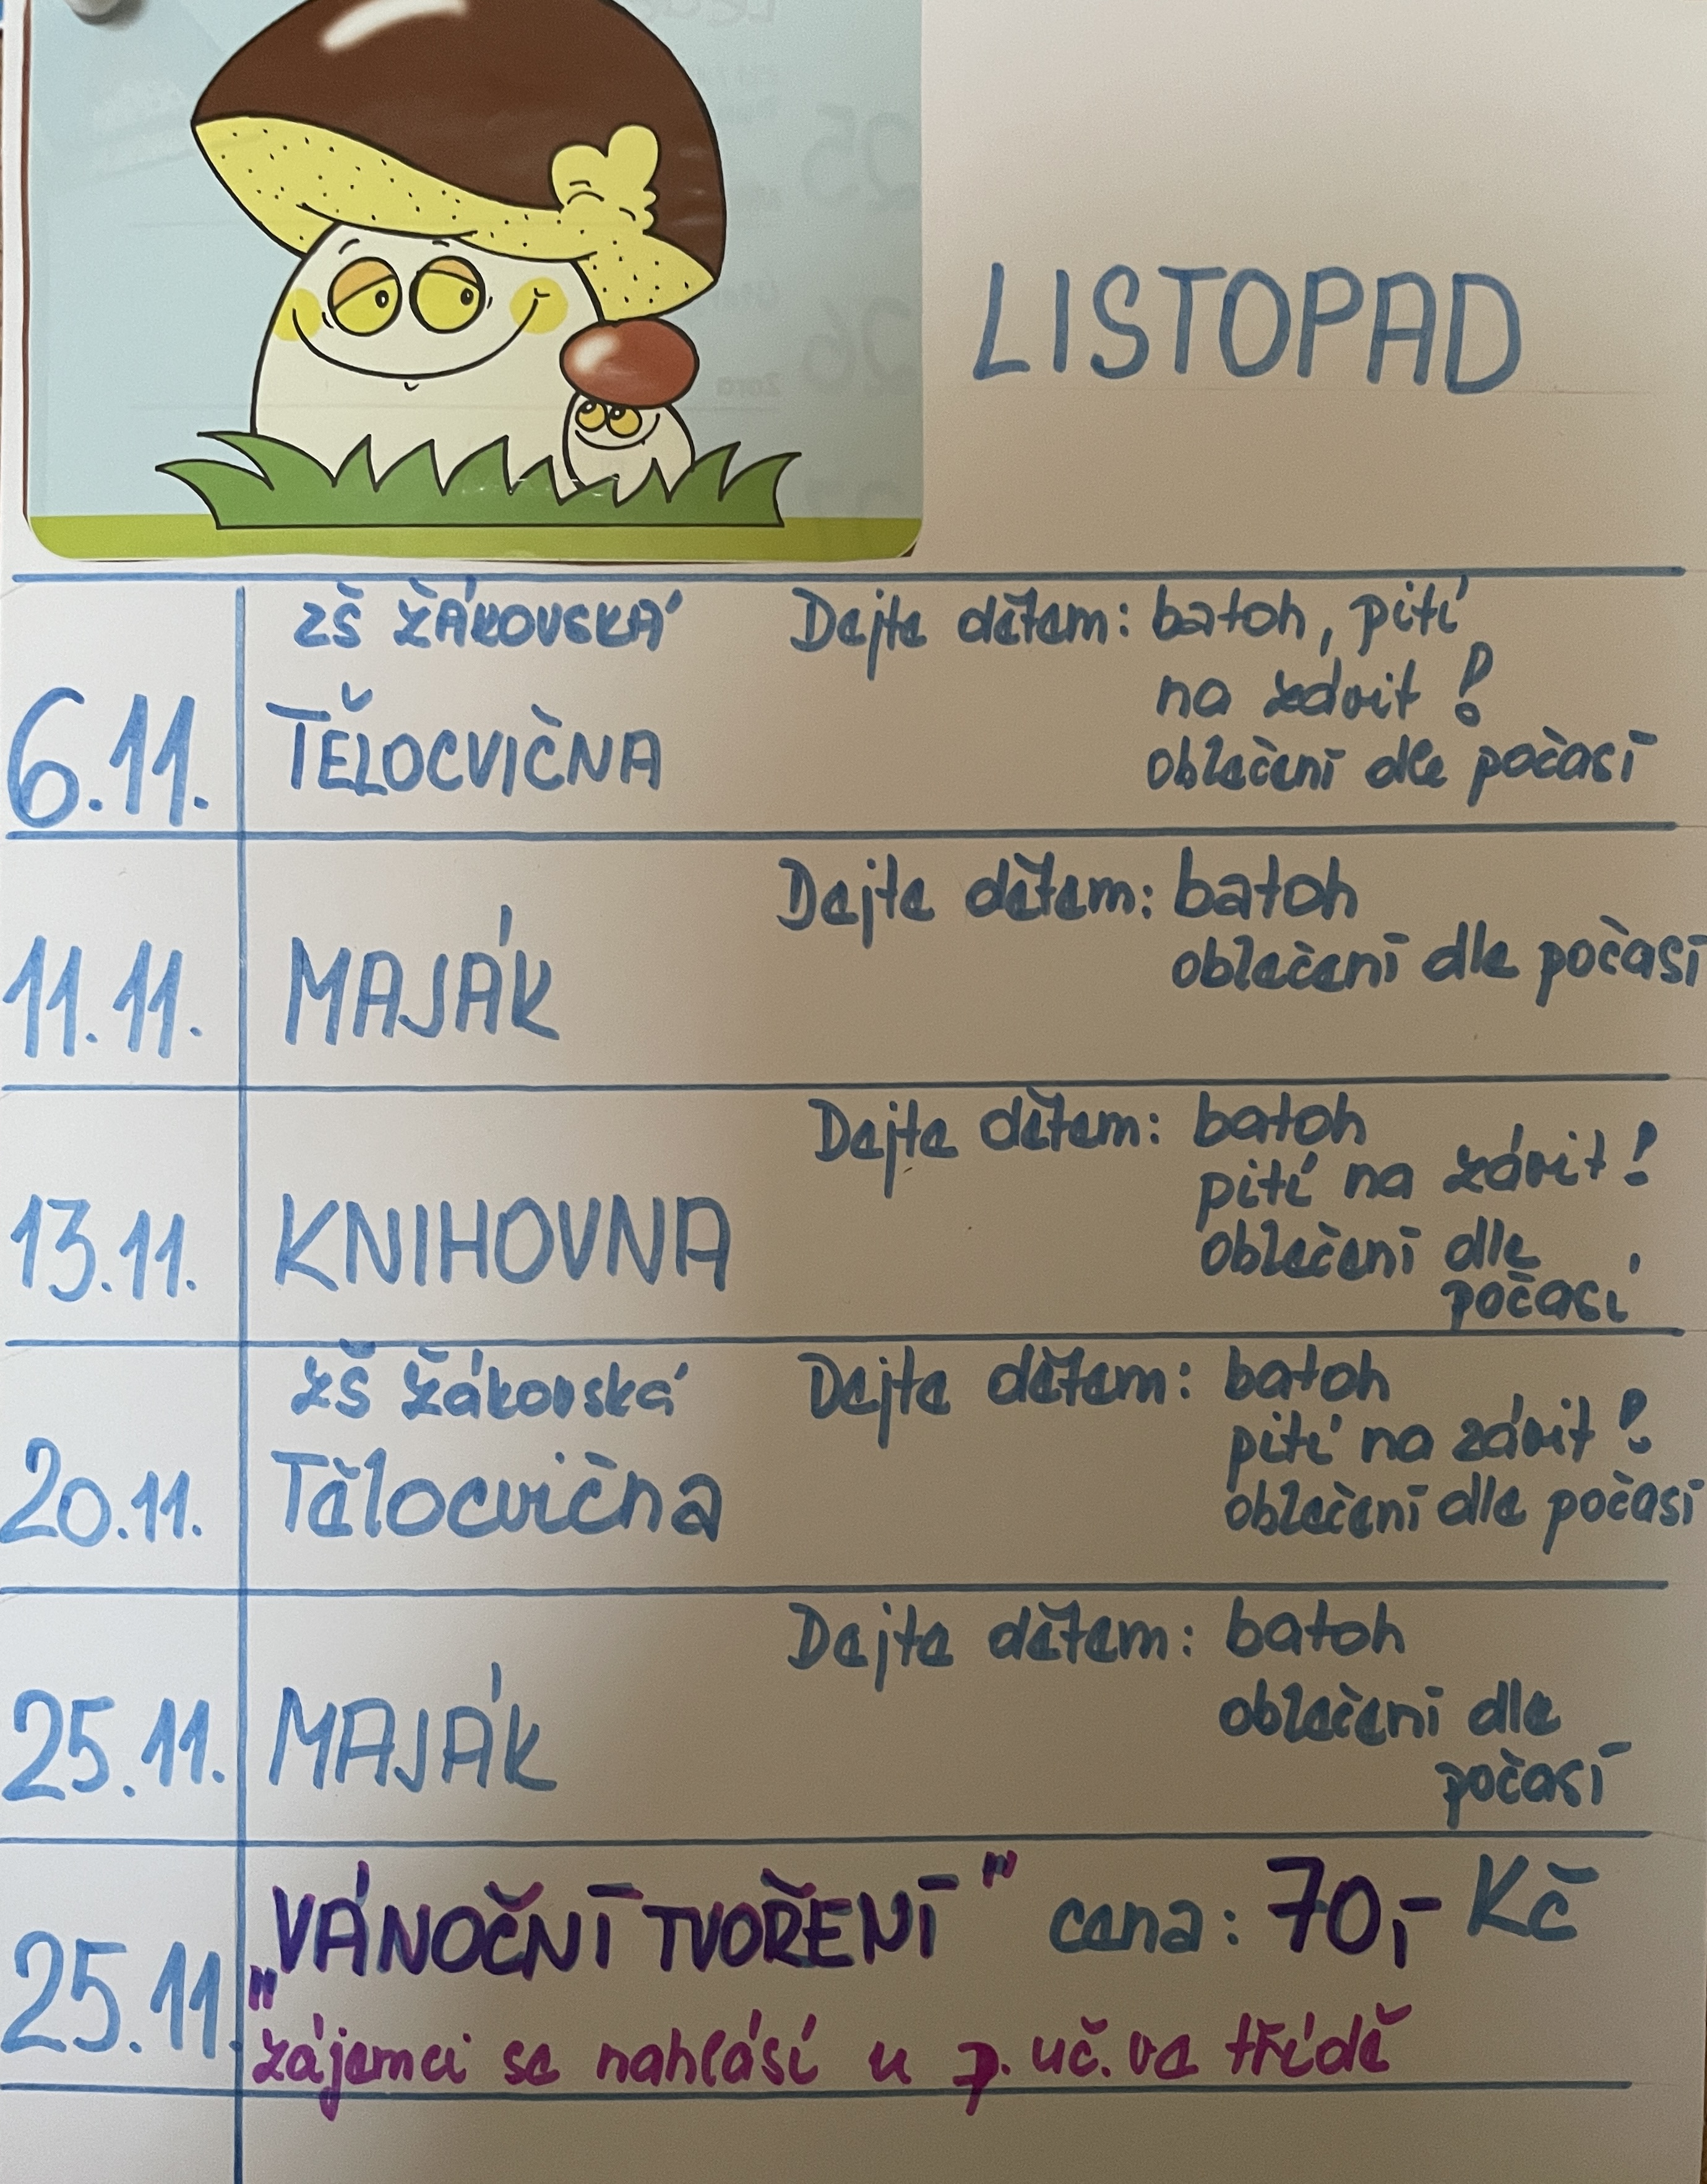 LISTOPAD
6.11.
ZŠ ŽÁKOVSKÁ
TĚLOCVIČNA
Dejte dětem: batoh, pití
na závit!
oblečení dle počasí
11.11.
MAJÁK
Dejte dětem: batoh
oblečení dle počasí
13.11.
KNIHOVNA
Dejte dětem: batoh
pití na závit!
oblečení dle
počasí
20.11.
ZŠ Žákovská
Tělocvična
Dejte dětem: batoh
pití na závit!
oblečení dle počasí
25.11.
MAJÁK
Dejte dětem: batoh
oblečení dle
počasí
25.11.
„VÁNOČNÍ TVOŘENÍ" cena: 70,- Kč
zájemci se nahlásí u p. uč. ve třídě